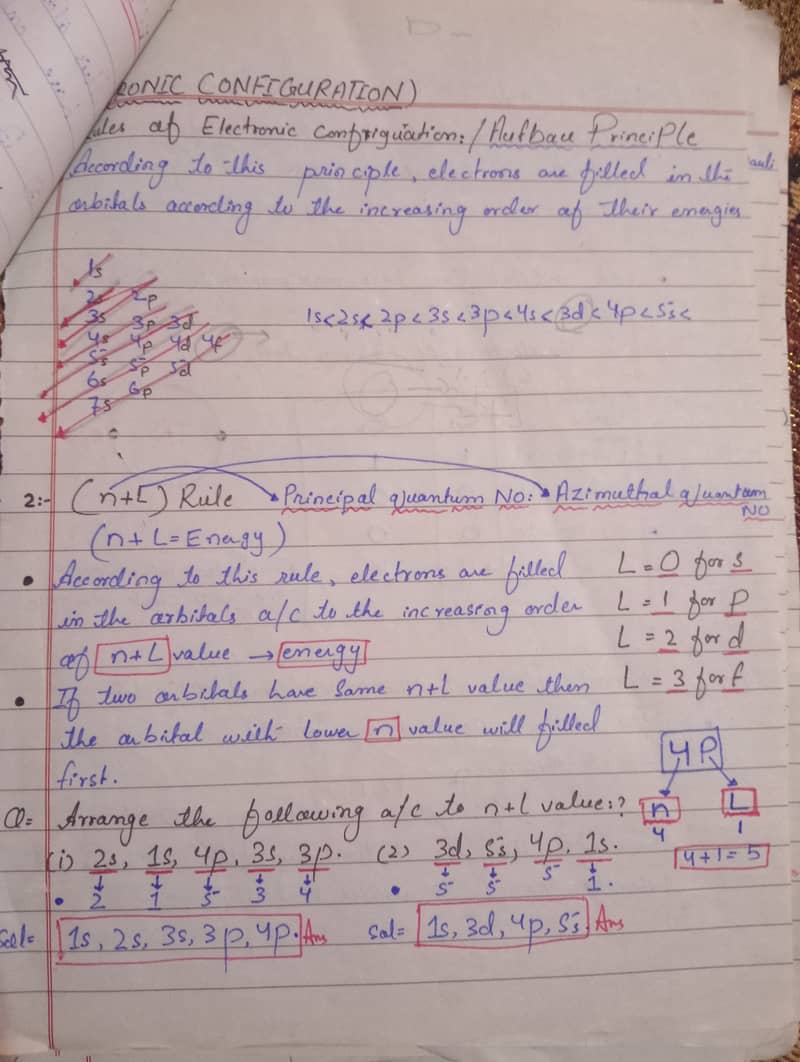 RONIC CONFIGURATION)
ules of Electronic Confriguration: / Aufbau Principle
According to this principle, electrons are filled in the
auli
orbitals according to the increasing order of their energies
1s
2s 2p
3s 3p 3d
4s 4p 4d 4f
5s 5p 5d
6s 6p
7s
1s<2s< 2p < 3s < 3p < 4s < 3d < 4p < 5s <
2:- (n+L) Rule Principal quantum NO: Azimuthal quantum
NO
(n + L = Energy)
• According to this rule, electrons are filled
in the orbitals a/c to the increasing order
of n+L value → energy
• If two orbitals have Same n+L value then
the orbital with lower n value will filled
first.
L = 0 for s
L = 1 for p
L = 2 for d
L = 3 for f
4P
n L
4 1
4+1 = 5
Q= Arrange the following a/c to n+L value:?
(i) 2s, 1s, 4p, 3s, 3p. (2) 3d, 5s, 4p, 1s.
• 2 1 5 3 4 • 5 5 5 1.
Sol= 1s, 2s, 3s, 3p, 4p. Ans Sol= 1s, 3d, 4p, 5s. Ans